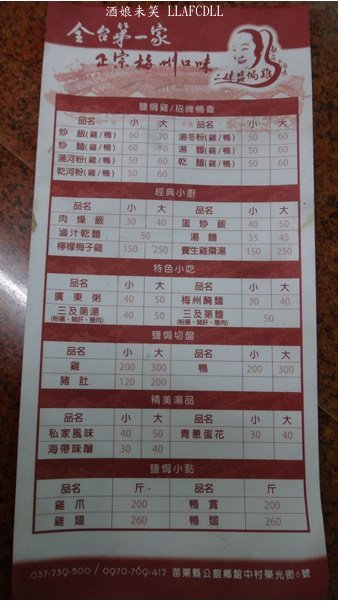 酒娘未笑 LLAFCDLL
全台第一家
正宗梅州口味
鹽焗雞/招牌鴨香
品名 小 大 品名 小 大
炒飯(雞/鴨) 60 70 湯冬粉(雞/鴨) 50 60
炒麵(雞/鴨) 60 70 湯麵(雞/鴨) 50 60
湯河粉(雞/鴨) 50 60 乾麵(雞/鴨) 50 60
乾河粉(雞/鴨) 50 60
經典小廚
品名 小 大 品名 小 大
肉燥飯 30 40 蛋炒飯 40 50
滷汁乾麵 50 湯麵 35 45
檸檬梅子雞 150 250 養生雞棗湯 150 250
特色小吃
品名 小 大 品名 小 大
廣東粥 40 50 梅州醃麵 30 40
三及第湯 40 50 三及第麵 50
(粉腸、豬肝、瘦肉) (粉腸、豬肝、瘦肉)
鹽焗切盤
品名 小 大 品名 小 大
雞 200 300 鴨 200 300
豬肚 120 200
精美湯品
品名 小 大 品名 小 大
私家風味 40 50 青蔥蛋花 30 40
海帶味噌 30 40
鹽焗小點
品名 斤 品名 斤
雞爪 200 鴨賞 200
雞翅 260 鴨翅 260
037-239-500 / 0970-769-412 苗栗縣公館鄉館中村榮光街6號